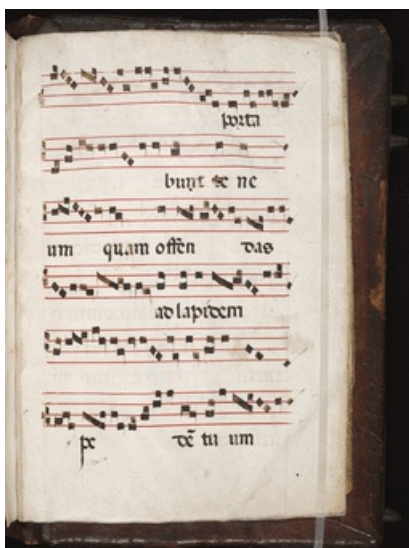 porta
bunt te ne
um quam offen das
ad lapidem
pe dē tu um